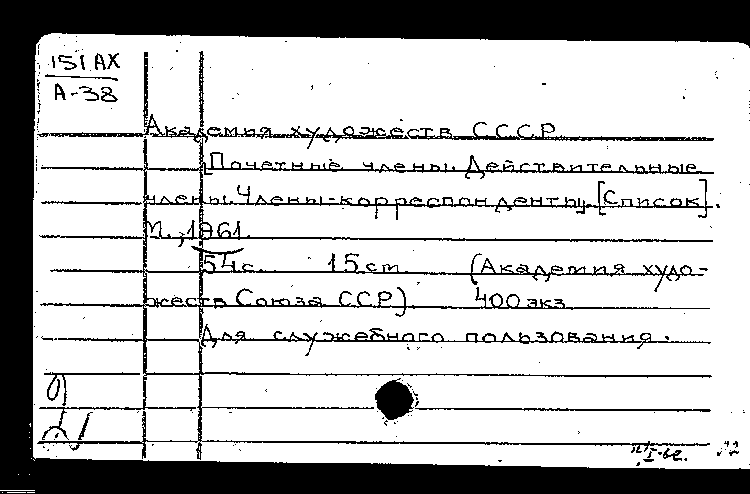 151 АХ
А-38
Академия художеств СССР
[Почетные члены. Действительные
члены. Члены-корреспонденты]. [Список].
М., 1961.
54 с. 15 cm. (Академия худо-
жеств Союза ССР). 400 экз.
Для служебного пользования.